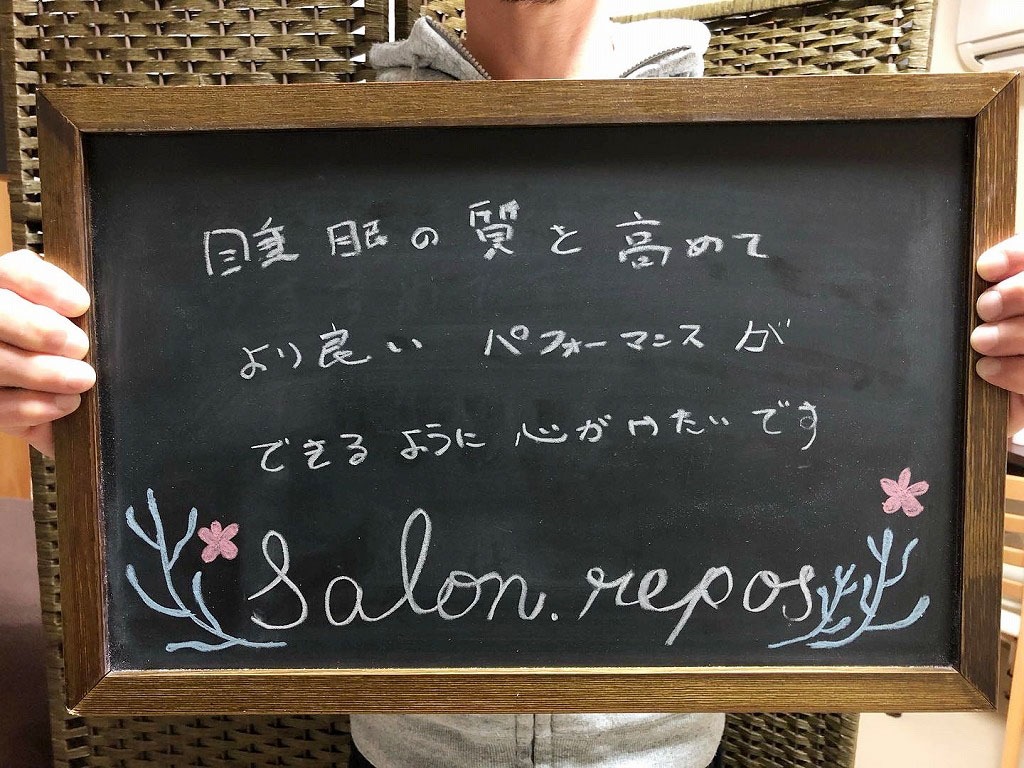 睡眠の質を高めて
より良い パフォーマンスが
できるように心がけたいです
Salon.repos